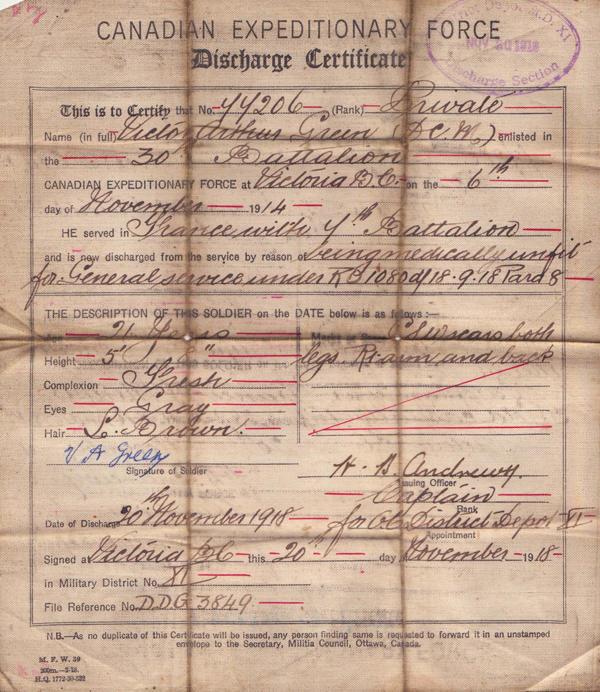 CANADIAN EXPEDITIONARY FORCE
Discharge Certificate
Dist. Depot M.D. XI
NOV 20 1918
Discharge Section
This is to Certify that No. 77206 (Rank) Private
Name (in full) Victor Arthur Green (D.C.M.) enlisted in
the 30th Battalion
CANADIAN EXPEDITIONARY FORCE at Victoria B.C. on the 6th
day of November 1914
HE served in France with 7th Battalion
and is now discharged from the service by reason of being medically unfit
for General service under R.O. 1080 d/18.9.18 Para 8
THE DESCRIPTION OF THIS SOLDIER on the DATE below is as follows:—
Age 21 Years
Height 5' 8"
Complexion Fresh
Eyes Gray
Hair L. Brown.
Marks or Scars both
legs. Rt arm and back
V A Green
Signature of Soldier
H. B. Andrews
Issuing Officer
Captain
Rank
Date of Discharge 20th November 1918
for O.C. District Depot XI
Appointment
Signed at Victoria BC this 20th day November 1918
in Military District No. XI
File Reference No. D.D.G 3849.
N.B.—As no duplicate of this Certificate will be issued, any person finding same is requested to forward it in an unstamped
envelope to the Secretary, Militia Council, Ottawa, Canada.
M. F. W. 39
200m.—7-18.
H.Q. 1772-39-322